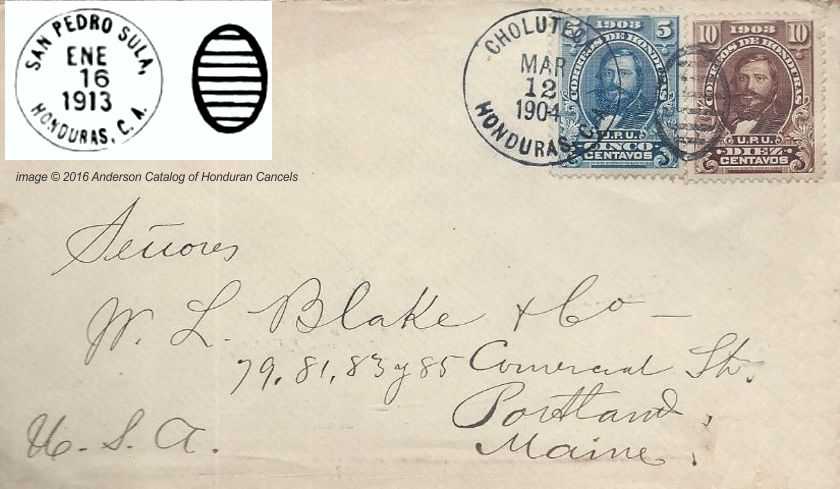 SAN PEDRO SULA,
ENE
16
1913
HONDURAS, C. A.
image © 2016 Anderson Catalog of Honduran Cancels
CHOLUTECA
MAR
12
1904
HONDURAS, C.A.
5 1903 5
CORREOS DE HONDURAS
U.P.U.
CINCO
CENTAVOS
10 1903 10
CORREOS DE HONDURAS
U.P.U.
DIEZ
CENTAVOS
Señores
W. L. Blake & Co —
79, 81, 83 y 85 Comercial St.
Portland,
Maine.
U. S. A.